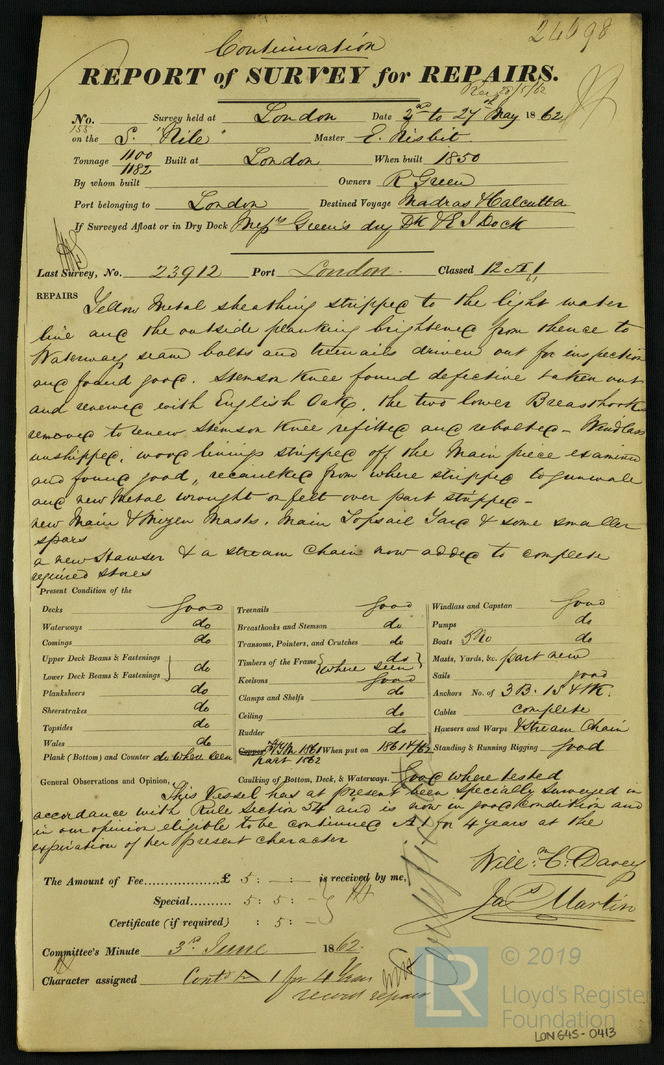 24698
Continuation
REPORT of SURVEY for REPAIRS.
Rec 28/5/62
No. Survey held at London Date 2nd to 27th May 1862
155
on the S. "Nile" Master E. Nisbit
Tonnage 1100 1182 Built at London When built 1850
By whom built Owners R Green
Port belonging to London Destined Voyage Madras & Calcutta
If Surveyed Afloat or in Dry Dock Messrs Green's dry Dk & E I Dock
Last Survey, No. 23912 Port London. Classed 12 A 1
61
REPAIRS Yellow Metal sheathing stripped to the light water
line and the outside planking brightened from thence to
Waterways, seam bolts and treenails driven out for inspection
and found good. Stemson Knee found defective taken out
and renewed with English Oak, the two lower Breasthooks
removed to renew Stemson Knee refitted and rebolted - Windlass
unshipped, wood linings stripped off the Main piece examined
and found good, recaulked from where stripped to gunwale
and new Metal wrought on felt over part stripped -
new Main & Mizen Masts, Main Topsail Yard & some smaller
spars
a new Hawser & a stream Chain now added to complete
required stores
Present Condition of the
Decks good
Waterways do
Comings do
Upper Deck Beams & Fastenings
Lower Deck Beams & Fastenings } do
Planksheers do
Sheerstrakes do
Topsides do
Wales do
Plank (Bottom) and Counter do where seen
Treenails good
Breasthooks and Stemson do
Transoms, Pointers, and Crutches do
Timbers of the Frame { do where seen }
Keelsons good
Clamps and Shelfs do
Ceiling do
Rudder do
Copper Y M 1861 When put on 1861 & 4/62
part 1862
Caulking of Bottom, Deck, & Waterways. Good where tested
Windlass and Capstan good
Pumps do
Boats 5 No do
Masts, Yards, &c. part new
Sails good
Anchors No. of 3 B. 1 S & 1 K.
Cables complete
Hawsers and Warps & Stream Chain
Standing & Running Rigging good
General Observations and Opinion,
This Vessel has at present been specially surveyed in
accordance with Rule Section 54 and is now in good condition and
in our opinion eligible to be continued A 1 for 4 years at the
expiration of her present character
Will: C. Davey
Jas Martin
The Amount of Fee £ 5 : – : – is received by me,
Special 5 : 5 : –
Certificate (if required) : 5 : –
Committee's Minute 3rd June 1862.
Character assigned Contd A 1 for 4 Years
record repairs
LR
© 2019
Lloyd's Register
Foundation
LON645-0413